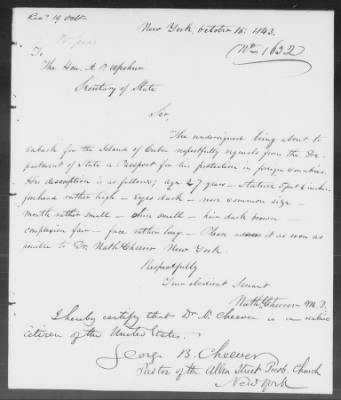 Recd 19 Octr.
New York, October 16. 1843.
No 1632
To
The Hon. A. P. Upshur
Secretary of State
Sir
The undersigned being about to
embark for the Island of Cuba respectfully requests from the De-
partment of State a Passport for his protection in foreign countries.
His description is as follows; age 27 years - stature 5 feet 6 inches
forehead rather high - eyes dark - nose common size -
mouth rather small - chin small - hair dark brown -
complexion fair - face rather long - Please it as soon as
possible to Dr. Nathl Cheever New York.
Respectfully
Your obedient Servant
Nathl Cheever M.D.
I hereby certify that Dr N. Cheever is a native
citizen of the United States.
George B. Cheever
Pastor of the Allen Street Presb. Church
New York